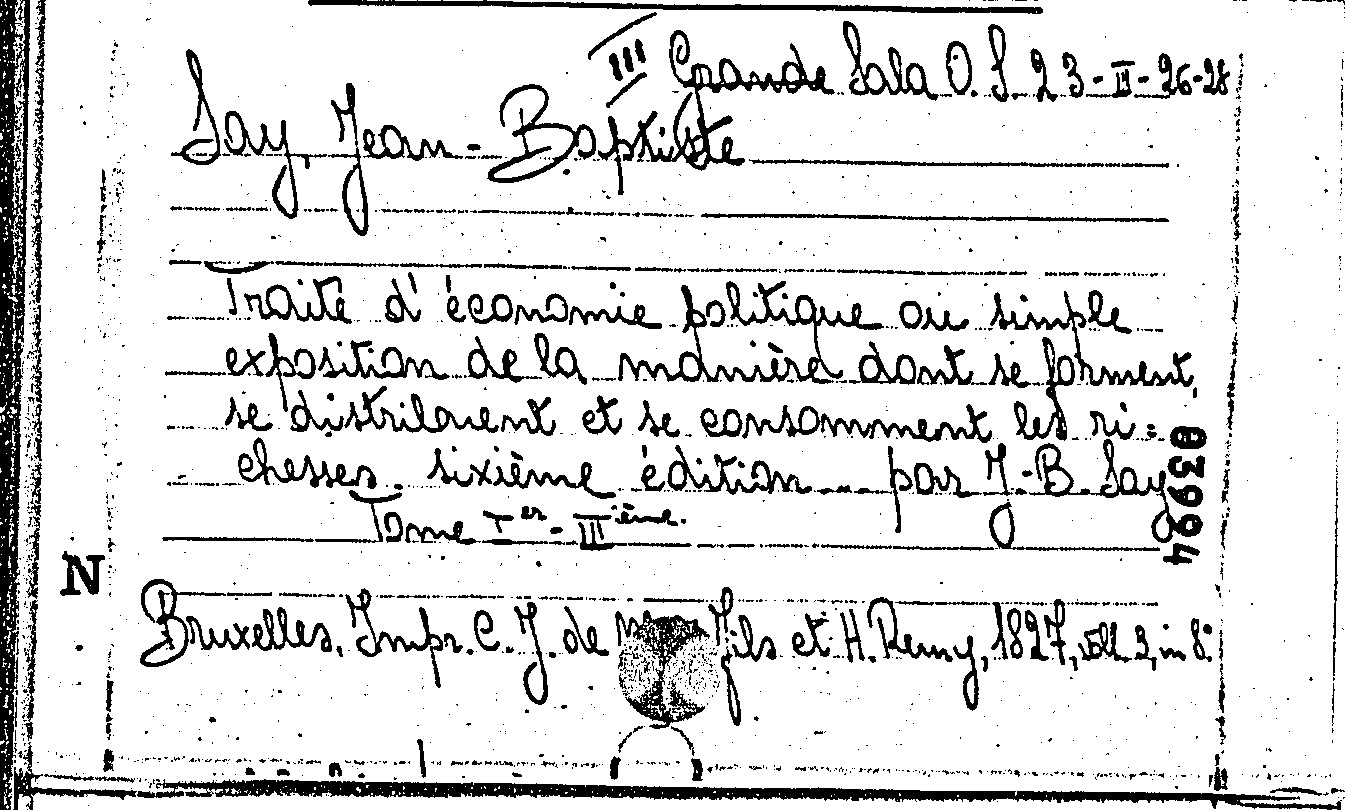 III Grande Sala O. S. 23-II-26-28
Say, Jean-Baptiste
Traité d'économie politique ou simple
exposition de la manière dont se forment,
se distribuent et se consomment les ri=
chesses. sixième édition... par J.-B. Say
03994
Tome Ier-IIIième.
N
Bruxelles, Impr. C. J. de fils et H. Remy, 1827, voll. 3, in 8°